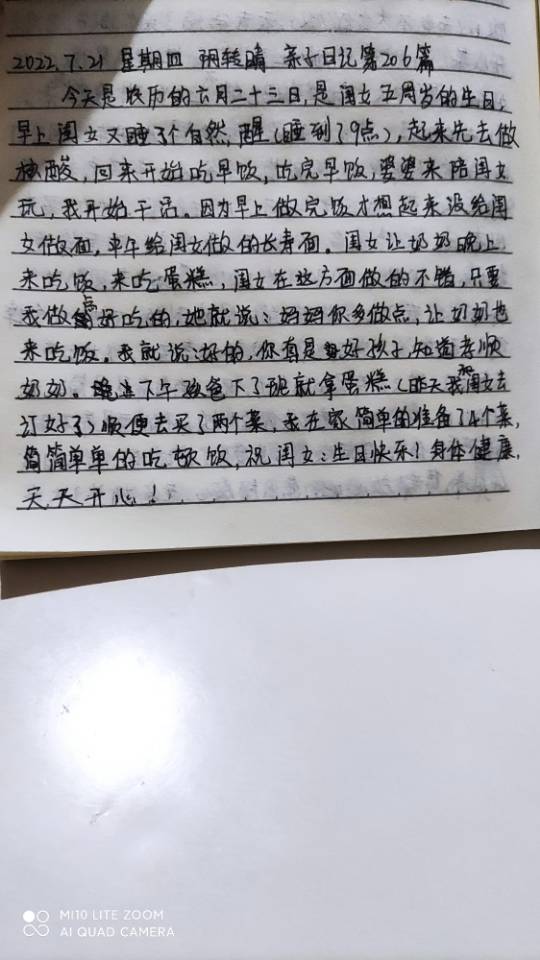 2022.7.21 星期四 阴转晴 亲子日记第206篇
今天是农历的六月二十三日,是闺女五周岁的生日,
早上闺女又睡了个自然醒(睡到了9点),起来先去做
核酸,回来开始吃早饭,吃完早饭,婆婆来陪闺女
玩,我开始干活。因为早上做完饭才想起来没给闺
女做面,中午给闺女做的长寿面。闺女让奶奶晚上
来吃饭,来吃蛋糕,闺女在这方面做的不错,只要
我做点好吃的,她就说:妈妈你多做点,让奶奶也
来吃饭。我就说:好的,你真是好孩子,知道孝顺
奶奶。下午孩爸下了班就拿蛋糕(昨天我和闺女去
订好了)顺便去买了两个菜,我在家简单的准备了4个菜,
简简单单的吃顿饭,祝闺女:生日快乐!身体健康,
天天开心!
MI10 LITE ZOOM
AI QUAD CAMERA